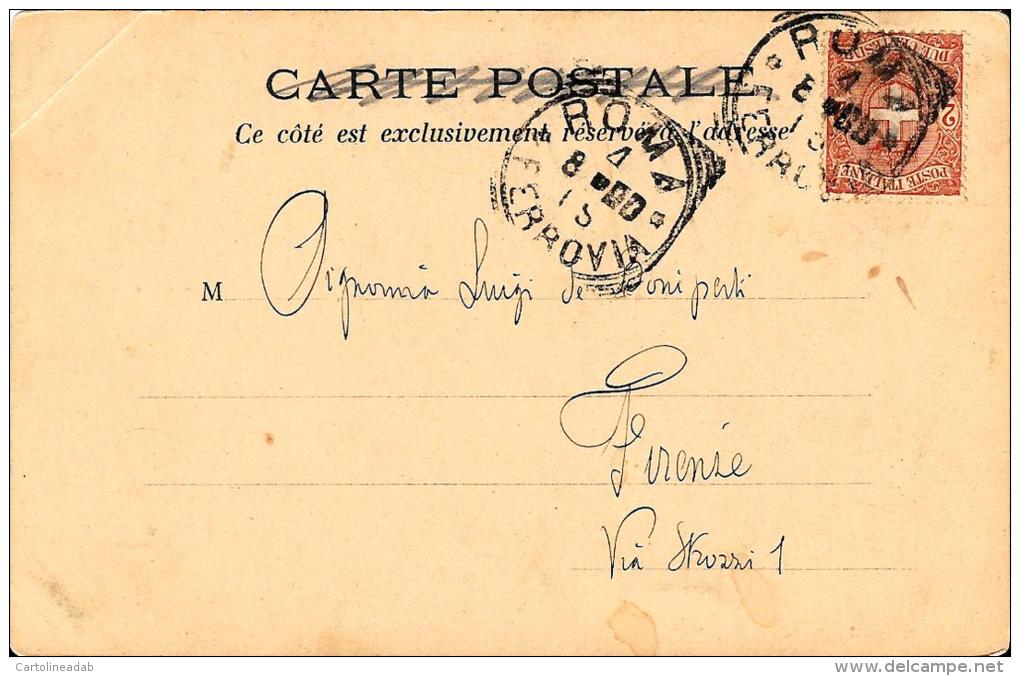 CARTE POSTALE
Ce côté est exclusivement réservé à l'adresse
ROMA
4
8 00
15
FERROVIA
ROMA
4
8 00
15
FERROVIA
DUE CENTESIMI
2
POSTE ITALIANE
M
Luigi de
Firenze
Via Strozzi 1
Cartolineadab
www.delcampe.net